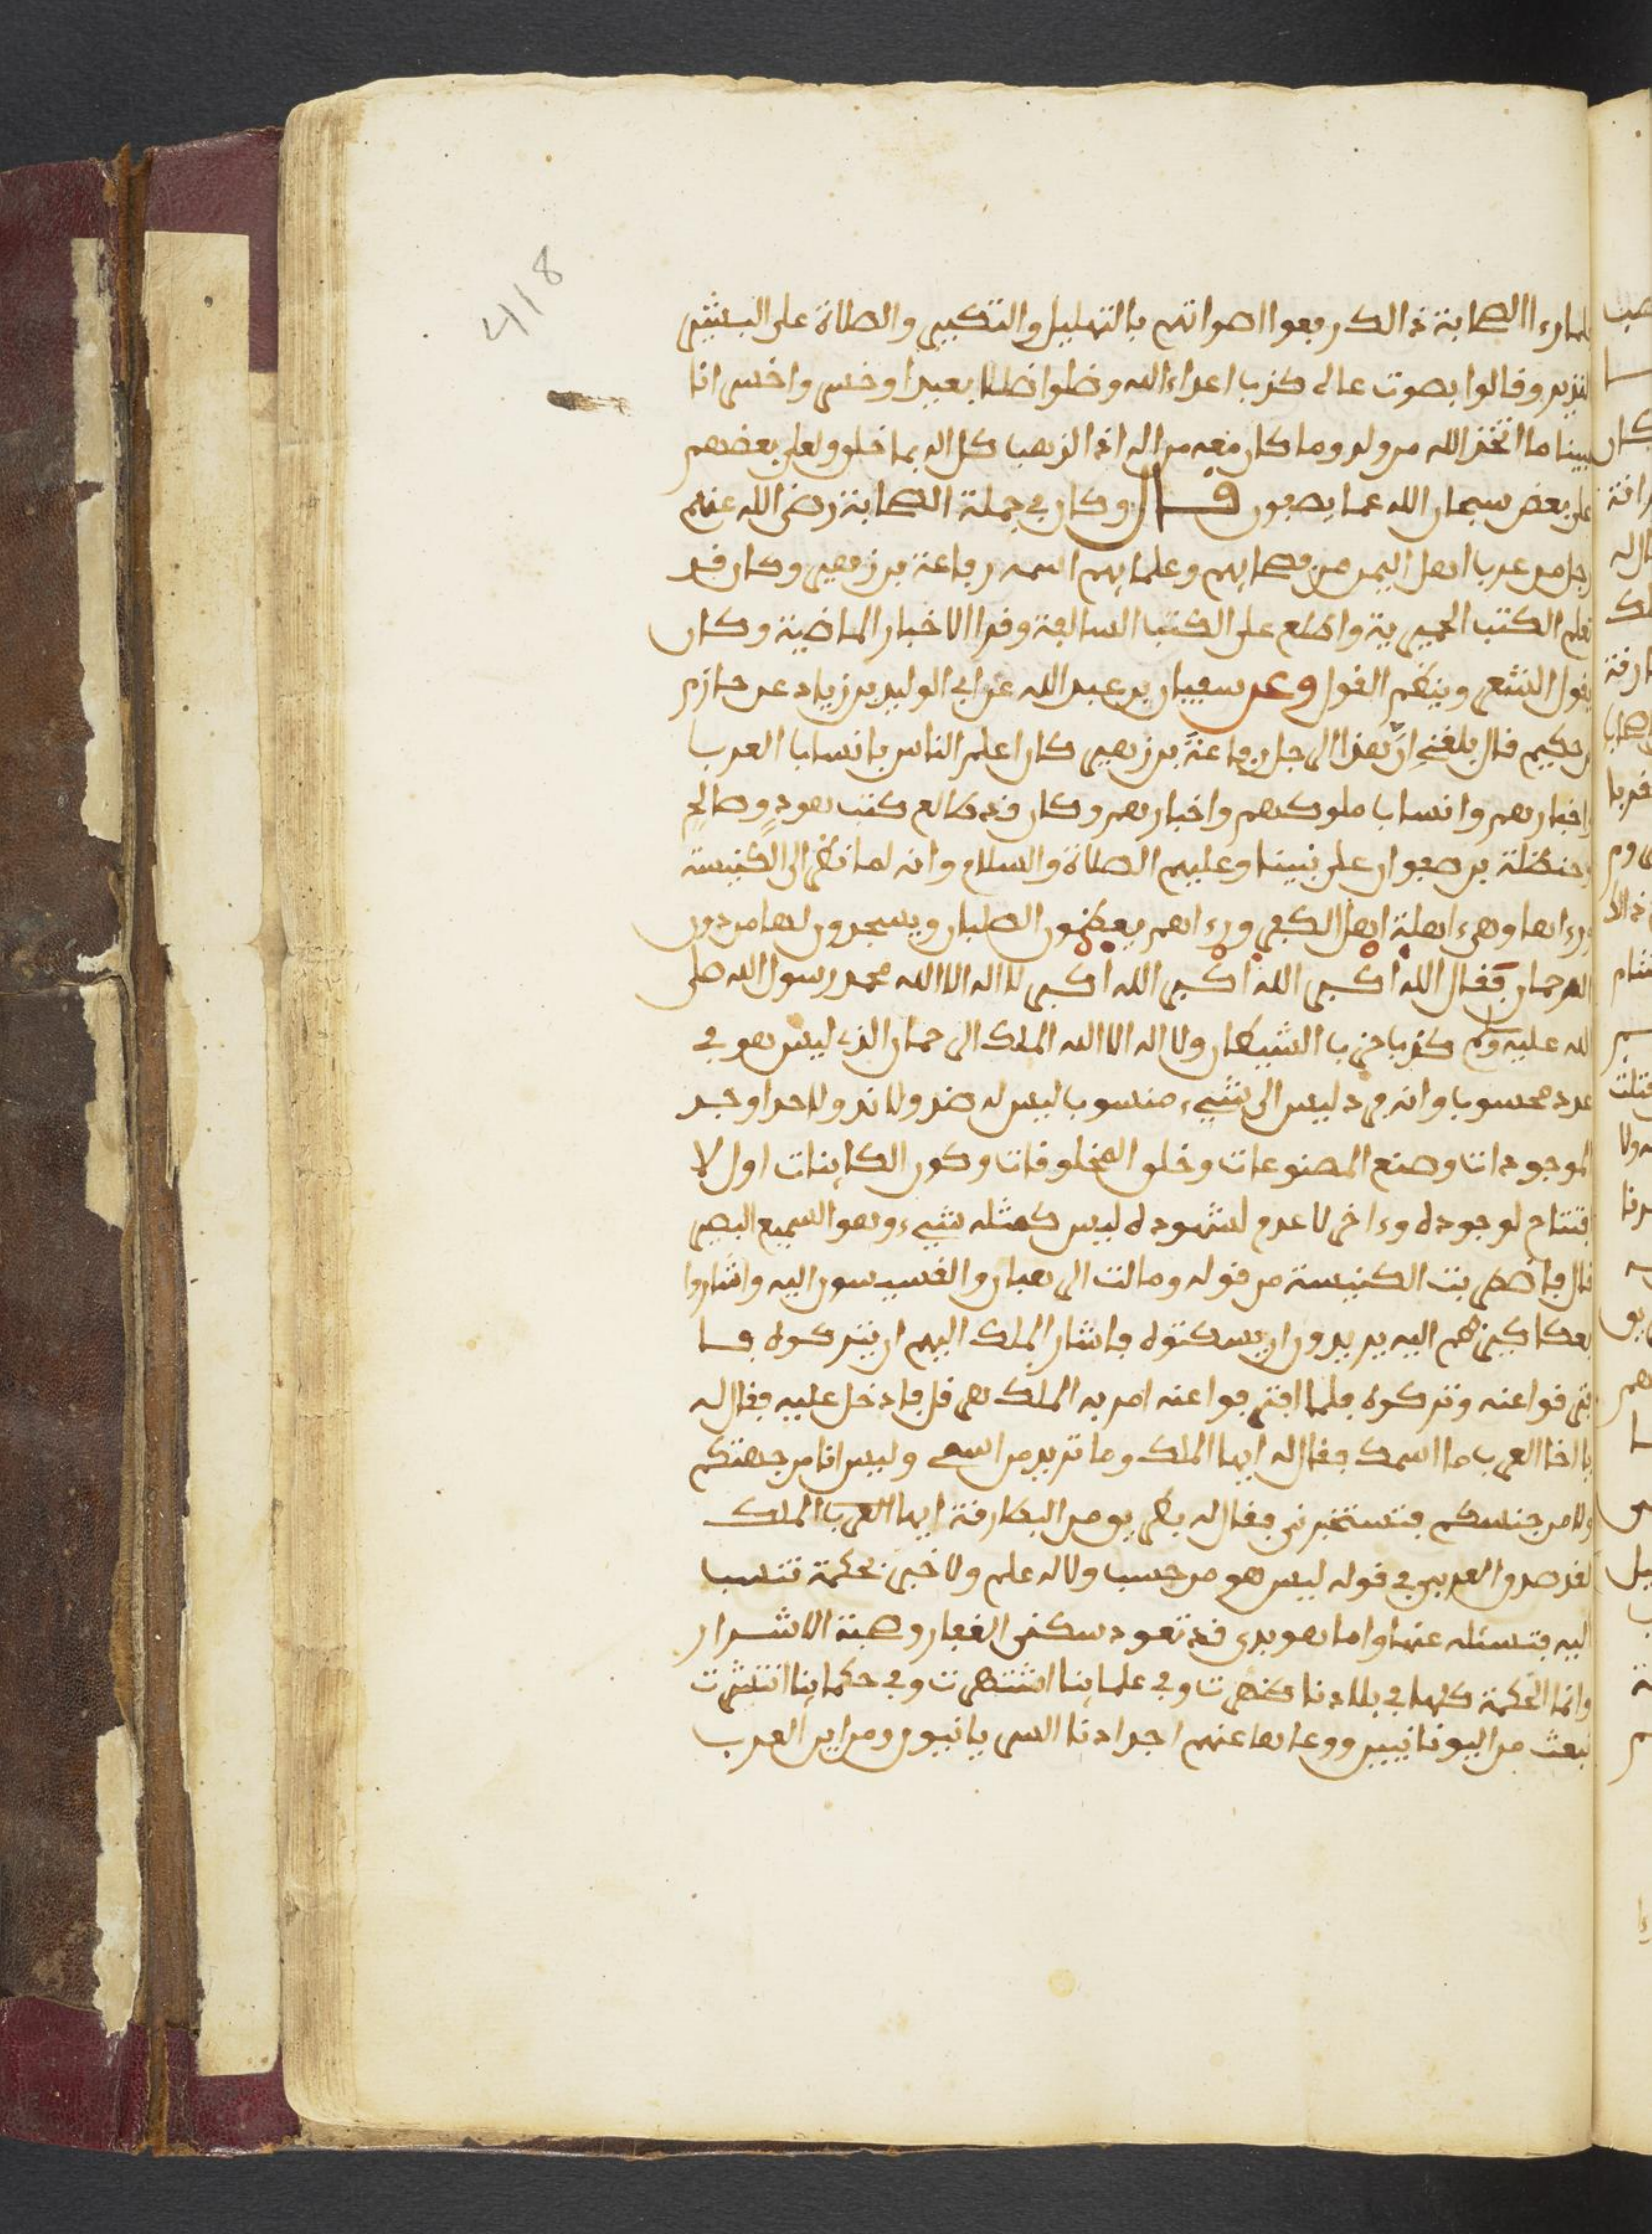 418
فلما رءا الصحابة ذالك رفعوا اصواتهم بالتهليل والتكبير والصلاة على البشير
النذير وقالوا بصوت عال كذب اعداء الله وضلوا ضلالا بعيدا وخسروا خسرانا
مبينا ما اتخذ الله من ولد وما كان معه من اله اذا لذهب كل اله بما خلق ولعلى بعضهم
على بعض سبحان الله عما يصفون قال وكان في جملة الصحابة رضي الله عنهم
رجل من عرب اهل اليمن من فصحايهم وعلمايهم اسمه رفاعة بن زهير وكان قد
تعلم الكتب الحميرية واطلع على الكتب السالفة وقرا الاخبار الماضية وكان
يقول الشعر وينظم القول وعن سفيان بن عبد الله عن ابي الوليد بن زياد عن حازم
بن حكيم قال بلغني ان هذا الرجل رفاعة بن زهير كان اعلم الناس بانساب العرب
واخبارهم وانساب ملوكهم واخبارهم وكان قد طالع كتب هود وصالح
وحنظلة بن صفوان على نبينا وعليهم الصلاة والسلام وانه لما نظر الى الكنيسة
ورءاها وهي اهلة اهل الكفر ورءاهم يعظمون الصلبان ويسجدون لها من دون
الرحمان فقال الله اكبر الله اكبر الله اكبر لا اله الا الله محمد رسول الله صلى
الله عليه وسلم كذبا حزب الشيطان ولا اله الا الله الملك الرحمان الذي ليس هو في
عدد محسوب وانه فرد ليس الى شيء منسوب ليس له ضد ولا ند ولا حد اوجد
الموجودات وصنع المصنوعات وخلق المخلوقات وكون الكاينات اول لا
افتتاح لوجوده وءاخر لا عدم لشهوده ليس كمثله شيء وهو السميع البصير
قال فاضطربت الكنيسة من قوله ومالت الرهبان والقسيسون اليه واشاروا
بعكاكيزهم اليه يريدون ان يسكتوه فاشار الملك اليهم ان يتركوه فا
فترقوا عنه وتركوه فلما افترقوا عنه امر به الملك هرقل فادخل عليه فقال له
يا اخا العرب ما اسمك فقال له ايها الملك وما تريد من اسمي وليس انا من جهتكم
ولا من جنسكم فتستخبرني فقال له بطريق من البطارقة ايها العرب الملك
لقد صدق العربي في قوله ليس هو من حسب ولا له علم ولا خبر بحكمة تنسب
اليه فتسئله عنها وانما هو بدوي قد تعود سكنى القفار وصحبة الاشرار
وانما الحكمة كلها في بلادنا ظهرت وفي علماينا اشتهرت وفي حكماينا انتشرت
نبعث من اليونانيين ووعاها عنهم اجدادنا السريانيون ومن اين العرب